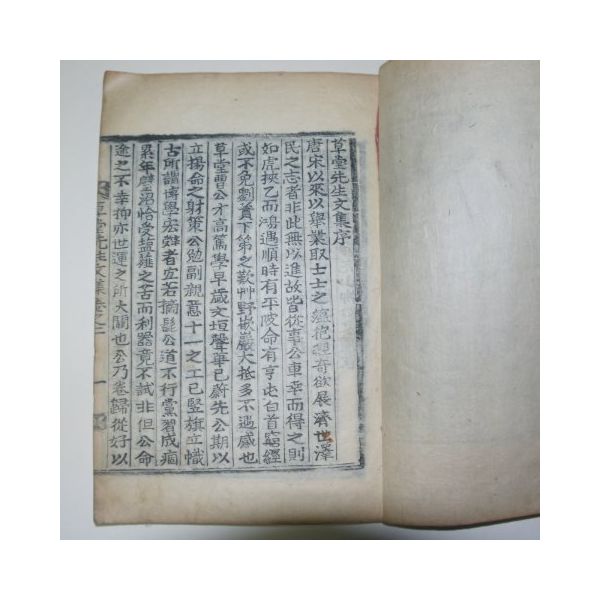 草堂先生文集序
唐宋以來以舉業取士士之蘊抱經奇欲展濟世澤
民之志者非此無以進故皆從事公車幸而得之則
如虎挾乙而鴻遇順時有平陂命有亨屯白首窮經
或不免劉蕡下第之歎艸野嵌巖大抵多不遇感也
草堂曺公才高篤學早歲文垣聲華已蔚先公期以
立揚命之射策公勉副親意十一之工已竪旗立幟
古所謂博學宏辭者宜若摘髭公道不行黨習成痼
累年壁沼恰受塩虀之苦而利器竟不試非但公命
途之不幸抑亦世運之所大關也公乃卷歸從好以
草堂先生文集卷之 一